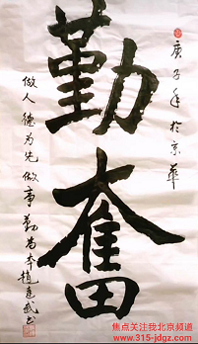 庚子年於京華
勤奮
做人德為先做事勤為本趙連武书
焦点关注我北京频道
www.315-jdgz.com